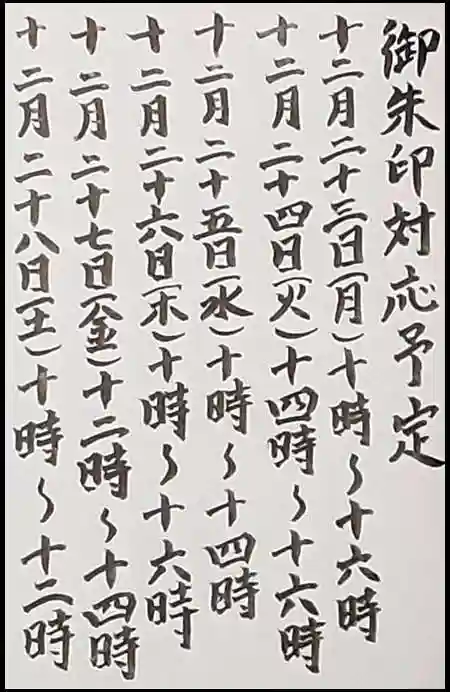 御朱印対応予定
十二月二十三日(月)十時~十六時
十二月二十四日(火)十四時~十六時
十二月二十五日(水)十時~十四時
十二月二十六日(木)十時~十六時
十二月二十七日(金)十二時~十四時
十二月二十八日(土)十時~十二時